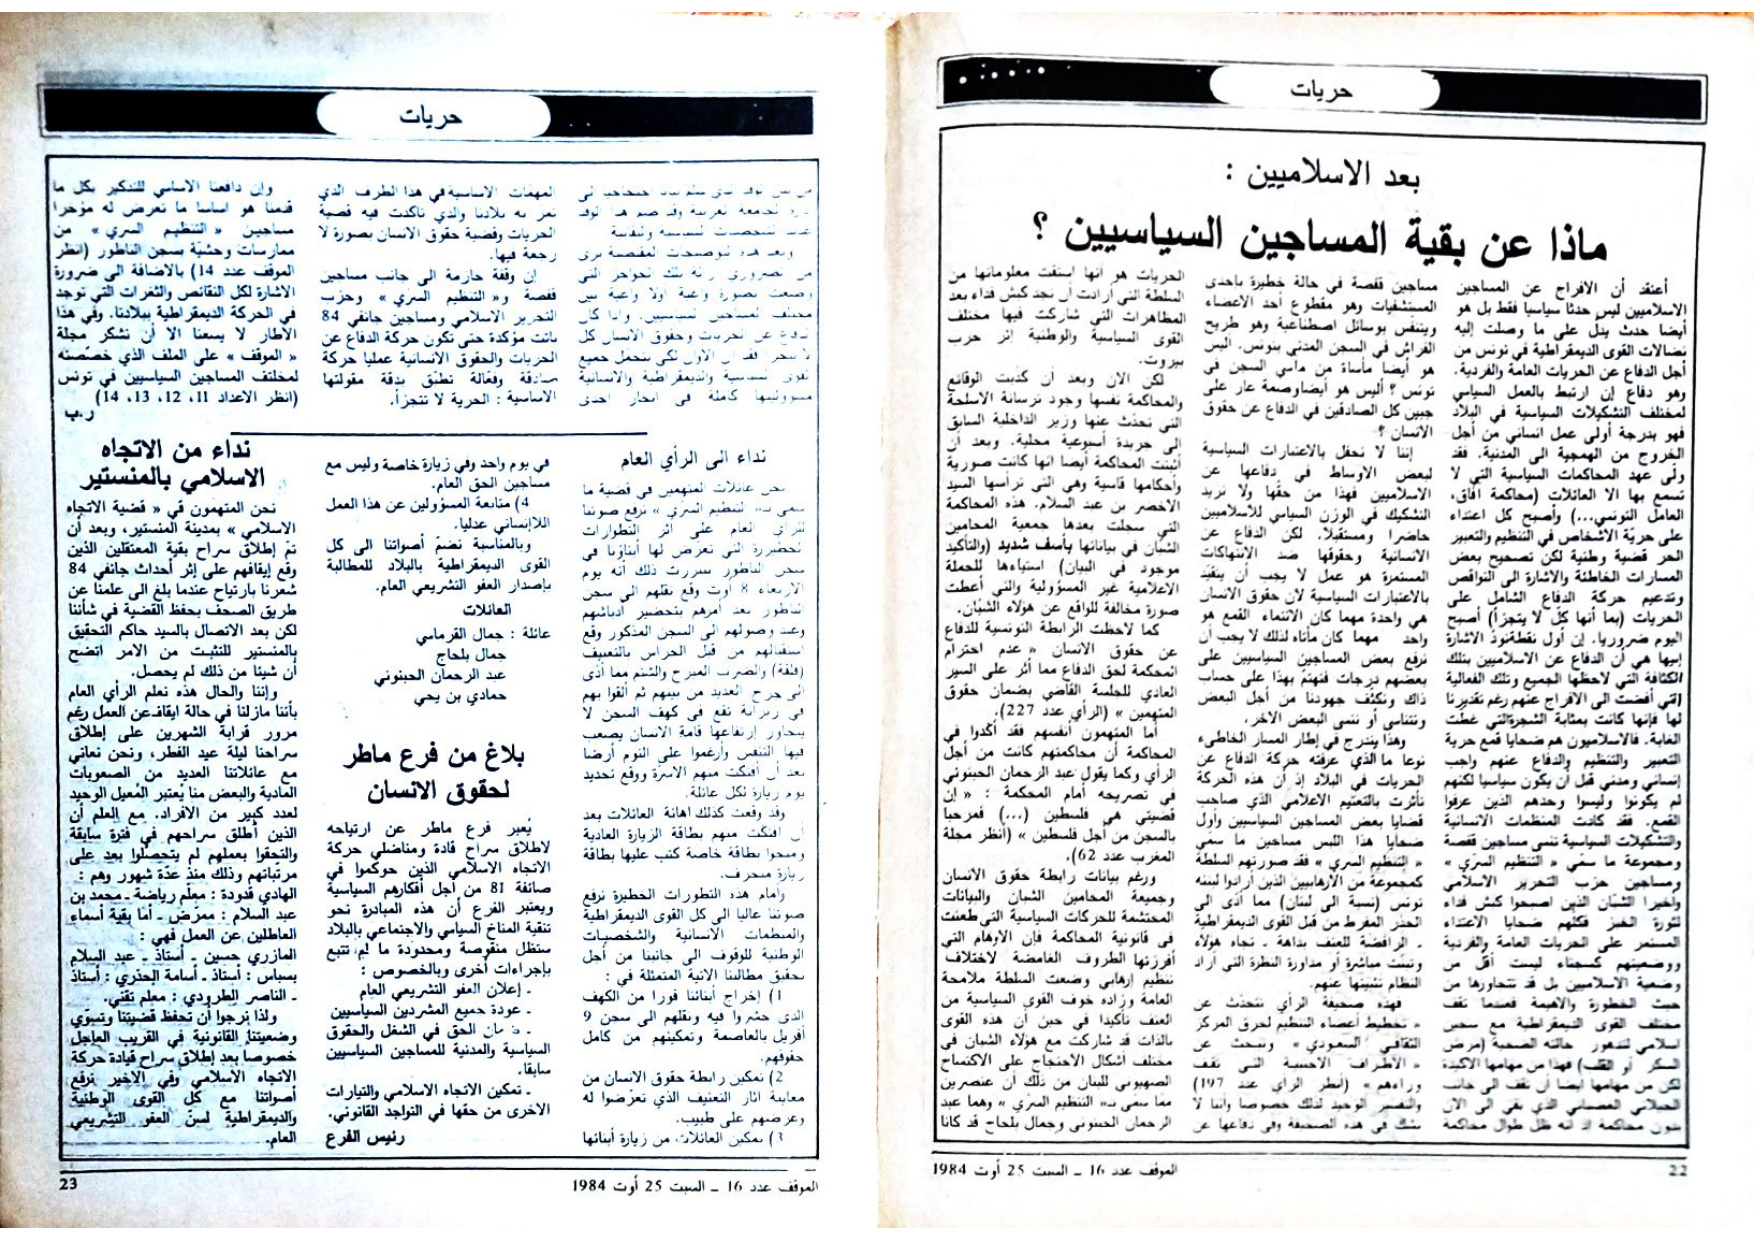 حريات
بعد الاسلاميين :
ماذا عن بقية المساجين السياسيين ؟
أعتقد أن الافراج عن المساجين
الاسلاميين ليس حدثا سياسيا فقط بل هو
أيضا حدث يدلّ على ما وصلت إليه
نضالات القوى الديمقراطية في تونس من
أجل الدفاع عن الحريات العامة والفردية.
وهو دفاع إن ارتبط بالعمل السياسي
لمختلف التشكيلات السياسية في البلاد
فهو بدرجة أولى عمل انساني من أجل
الخروج من الهمجية الى المدنية. فقد
ولّى عهد المحاكمات السياسية التي لا
تسمع بها الا العائلات (محاكمة آفاق،
العامل التونسي...) وأصبح كل اعتداء
على حريّة الأشخاص في التنظيم والتعبير
الحر قضية وطنية لكن تصحيح بعض
المسارات الخاطئة والاشارة الى النواقص
وتدعيم حركة الدفاع الشامل على
الحريات (بما أنها كلّ لا يتجزأ) أصبح
اليوم ضروريا. إن أول نقطة نودّ الاشارة
إليها هي أن الدفاع عن الاسلاميين بتلك
الكثافة التي لاحظها الجميع وتلك الفعالية
التي أفضت الى الافراج عنهم رغم تقديرنا
لها فإنها كانت بمثابة الشجرة التي غطت
الغابة. فالاسلاميون هم ضحايا قمع حرية
التعبير والتنظيم والدفاع عنهم واجب
إنساني ومدني قبل أن يكون سياسيا لكنهم
لم يكونوا وليسوا وحدهم الذين عرفوا
القمع. فقد كانت المنظمات الانسانية
والتشكيلات السياسية تنسى مساجين قفصة
ومجموعة ما سمّي « التنظيم السري »
ومساجين حزب التحرير الاسلامي
وأخيرا الشبّان الذين اصبحوا كبش فداء
لثورة الخبز فكلهم ضحايا الاعتداء
المستمر على الحريات العامة والفردية
ووضعيتهم كسجناء ليست أقلّ من
وضعية الاسلاميين بل قد تتجاوزها من
حيث الخطورة والأهمية فعندما تقف
مختلف القوى الديمقراطية مع سجين
اسلامي لتدهور حالته الصحية (مرض
السكر أو القلب) فهذا من مهامها الأكيدة
لكن من مهامها أيضا أن تقف الى جانب
الجيلاني الغضباني الذي بقي الى الآن
بدون محاكمة إذ انه ظل طوال محاكمة
مساجين قفصة في حالة خطيرة بإحدى
المستشفيات وهو مقطوع أحد الأعضاء
ويتنفس بوسائل اصطناعية وهو طريح
الفراش في السجن المدني بتونس. أليس
هو أيضا مأساة من مآسي السجن في
تونس ؟ أليس هو أيضا وصمة عار على
جبين كل الصادقين في الدفاع عن حقوق
الانسان ؟
إننا لا نحفل بالاعتبارات السياسية
لبعض الاوساط في دفاعها عن
الاسلاميين فهذا من حقّها ولا نريد
التشكيك في الوزن السياسي للاسلاميين
حاضرا ومستقبلا. لكن الدفاع عن
الانسانية وحقوقها ضد الانتهاكات
المستمرة هو عمل لا يجب أن يتقيّد
بالاعتبارات السياسية لأن حقوق الانسان
هي واحدة مهما كان الانتماء القمع هو
واحد مهما كان مأتاه لذلك لا يجب أن
نرفع بعض المساجين السياسيين على
بعضهم درجات فنهتمّ بهذا على حساب
ذاك ونكثّف جهودنا من أجل البعض
ونتناسى أو ننسى البعض الآخر.
وهذا يندرج في إطار المسار الخاطىء
نوعا ما الذي عرفته حركة الدفاع عن
الحريات في البلاد إذ أن هذه الحركة
تأثرت بالتعتيم الاعلامي الذي صاحب
قضايا بعض المساجين السياسيين وأول
ضحايا هذا اللبس مساجين ما سمّي
« التنظيم السري » فقد صورتهم السلطة
كمجموعة من الارهابيين الذين أرادوا لبننة
تونس (نسبة الى لبنان) مما أدى الى
الحذر المفرط من قبل القوى الديمقراطية
- الرافضة للعنف بداهة - تجاه هؤلاء
وتبنّت مباشرة أو مداورة النظرة التي أراد
النظام تثبيتها عنهم.
فهذه صحيفة الرأي تتحدث عن
« تخطيط أعضاء التنظيم لحرق المركز
الثقافي السعودي » وتبحث عن
« الأطراف الأجنبية التي تقف
وراءهم » (أنظر الرأي عدد 197)
والتفسير الوحيد لذلك خصوصا وأننا لا
نشك في هذه الصحيفة وفي دفاعها عن
الحريات هو أنها استقت معلوماتها من
السلطة التي أرادت أن تجد كبش فداء بعد
المظاهرات التي شاركت فيها مختلف
القوى السياسية والوطنية إثر حرب
بيروت.
لكن الان وبعد أن كذّبت الوقائع
والمحاكمة نفسها وجود ترسانة الاسلحة
التي تحدّث عنها وزير الداخلية السابق
الى جريدة أسبوعية محلية. وبعد أن
أثبتت المحاكمة أيضا انها كانت صورية
وأحكامها قاسية وهي التي ترأسها السيد
الأخضر بن عبد السلام. هذه المحاكمة
التي سجلت بعدها جمعية المحامين
الشبان في بياناتها بأسف شديد (والتأكيد
موجود في البيان) استياءها للحملة
الاعلامية غير المسؤولية والتي أعطت
صورة مخالفة للواقع عن هؤلاء الشبّان.
كما لاحظت الرابطة التونسية للدفاع
عن حقوق الانسان « عدم احترام
المحكمة لحق الدفاع مما أثر على السير
العادي للجلسة القاضي بضمان حقوق
المتهمين » (الرأي عدد 227).
أما المتهمون أنفسهم فقد أكدوا في
المحاكمة أن محاكمتهم كانت من أجل
الرأي وكما يقول عبد الرحمان الحبنوني
في تصريحه أمام المحكمة : « إن
قضيتي هي فلسطين (...) فمرحبا
بالسجن من أجل فلسطين » (أنظر مجلة
المغرب عدد 62).
ورغم بيانات رابطة حقوق الانسان
وجمعية المحامين الشبان والبيانات
المحتشمة للحركات السياسية التي طعنت
في قانونية المحاكمة فإن الأوهام التي
أفرزتها الظروف الغامضة لاختلاف
تنظيم إرهابي وضعت السلطة ملامحه
العامة وزاده خوف القوى السياسية من
العنف تأكيدا في حين أن هذه القوى
بالذات قد شاركت مع هؤلاء الشبان في
مختلف أشكال الاحتجاج على الاكتساح
الصهيوني للبنان من ذلك أن عنصرين
ممّا سمّي بـ« التنظيم السري » وهما عبد
الرحمان الحبنوني وجمال بلحاج قد كانا
22
الموقف عدد 16 ـ السبت 25 أوت 1984
حريات
وبعد هذه التوضيحات المقتضبة نرى
من الضروري إزالة تلك الحواجز التي
وضعت بصورة واعية أولا واعية بين
مختلف المساجين السياسيين. وإذا كان
الدفاع عن الحريات وحقوق الانسان كل
لا يتجزأ فقد آن الأوان لكي تتحمل جميع
القوى السياسية والديمقراطية والانسانية
مسؤوليتها كاملة في انجاز احدى
المهمّات الاساسية في هذا الظرف الذي
تمر به بلادنا والذي تأكدت فيه قضية
الحريات وقضية حقوق الانسان بصورة لا
رجعة فيها.
إن وقفة حازمة الى جانب مساجين
قفصة و« التنظيم السري » وحزب
التحرير الاسلامي ومساجين جانفي 84
باتت مؤكدة حتى تكون حركة الدفاع عن
الحريات والحقوق الانسانية عمليا حركة
صادقة وفعّالة تطبّق بدقة مقولتها
الاساسية : الحرية لا تتجزأ.
وإن دافعنا الاساسي للتذكير بكل ما
قدمنا هو اساسا ما تعرض له مؤخرا
مساجين « التنظيم السري » من
ممارسات وحشيّة بسجن الناظور (انظر
الموقف عدد 14) بالاضافة الى ضرورة
الاشارة لكل النقائص والثغرات التي توجد
في الحركة الديمقراطية ببلادنا. وفي هذا
الأطار لا يسعنا الا أن نشكر مجلة
« الموقف » على الملف الذي خصّصته
لمختلف المساجين السياسيين في تونس
(انظر الاعداد 11، 12، 13، 14)
ر.ب
نداء الى الرأي العام
نحن عائلات المتهمين في قضية ما
سمي بـ« التنظيم السري » نرفع صوتنا
للرأي العام على اثر التطورات
الخطيرة التي تعرض لها أبناؤنا في
سجن الناظور مبررت ذلك أنه يوم
الاربعاء 8 أوت وقع نقلهم الى سجن
الناظور بعد أمرهم بتحضير أدباشهم
وعند وصولهم الى السجن المذكور وقع
استقبالهم من قبل الحراس بالتعنيف
(فلقة) والضرب المبرح والشتم مما أدى
الى جرح العديد من بينهم ثم ألقوا بهم
في زنزانة تقع في كهف السجن لا
يتجاوز ارتفاعها قامة الانسان يصعب
فيها التنفس وأرغموا على النوم أرضا
بعد أن أفتكت منهم الأسرة ووقع تحديد
يوم زيارة لكل عائلة.
وقد وقعت كذلك اهانة العائلات بعد
أن افتكت منهم بطاقة الزيارة العادية
ومنحوا بطاقة خاصة كتب عليها بطاقة
زيارة منحرف.
وأمام هذه التطورات الخطيرة نرفع
صوتنا عاليا الى كل القوى الديمقراطية
والمنظمات الانسانية والشخصيات
الوطنية للوقوف الى جانبنا من أجل
تحقيق مطالبنا الآتية المتمثلة في :
1) إخراج أبنائنا فورا من الكهف
الذي حشروا فيه ونقلهم الى سجن 9
أفريل بالعاصمة وتمكينهم من كامل
حقوقهم.
2) تمكين رابطة حقوق الانسان من
معاينة آثار التعنيف الذي تعرّضوا له
وعرضهم على طبيب.
3) تمكين العائلات من زيارة أبنائها
في يوم واحد وفي زيارة خاصة وليس مع
مساجين الحق العام.
4) متابعة المسؤولين عن هذا العمل
اللاإنساني عدليا.
وبالمناسبة نضمّ أصواتنا الى كل
القوى الديمقراطية بالبلاد للمطالبة
بإصدار العفو التشريعي العام.
العائلات
عائلة : جمال القرماسي
جمال بلحاج
عبد الرحمان الحبنوني
حمادي بن يحي
بلاغ من فرع ماطر
لحقوق الانسان
يُعبر فرع ماطر عن ارتياحه
لاطلاق سراح قادة ومناضلي حركة
الاتجاه الاسلامي الذين حوكموا في
صائفة 81 من أجل أفكارهم السياسية
ويعتبر الفرع أن هذه المبادرة نحو
تنقية المناخ السياسي والاجتماعي بالبلاد
ستظل منقوصة ومحدودة ما لم تتبع
بإجراءات أخرى وبالخصوص :
. إعلان العفو التشريعي العام
. عودة جميع المشردين السياسيين
. ضمان الحق في الشغل والحقوق
السياسية والمدنية للمساجين السياسيين
سابقا.
. تمكين الاتجاه الاسلامي والتيارات
الاخرى من حقها في التواجد القانوني.
رئيس الفرع
نداء من الاتجاه
الاسلامي بالمنستير
نحن المتهمون في « قضية الاتجاه
الاسلامي » بمدينة المنستير، وبعد أن
تمّ إطلاق سراح بقية المعتقلين الذين
وقع إيقافهم على إثر أحداث جانفي 84
شعرنا بارتياح عندما بلغ الى علمنا عن
طريق الصحف بحفظ القضية في شأننا
لكن بعد الاتصال بالسيد حاكم التحقيق
بالمنستير للتثبت من الأمر اتضح
أن شيئا من ذلك لم يحصل.
وإننا والحال هذه نعلم الرأي العام
بأننا مازلنا في حالة ايقاف عن العمل رغم
مرور قرابة الشهرين على إطلاق
سراحنا ليلة عيد الفطر، ونحن نعاني
مع عائلاتنا العديد من الصعوبات
المادية والبعض منا يُعتبر المُعيل الوحيد
لعدد كبير من الأفراد. مع العلم أن
الذين أطلق سراحهم في فترة سابقة
والتحقوا بعملهم لم يتحصلوا بعد على
مرتباتهم وذلك منذ عدّة شهور وهم :
الهادي قدودة : معلّم رياضة ـ محمد بن
عبد السلام : ممرض ـ أما بقية أسماء
العاطلين عن العمل فهي :
المازري حسين ـ أستاذ ـ عبد السلام
بسباس : أستاذ ـ أسامة الجذري : أستاذ
ـ الناصر الطرودي : معلم تقني.
ولذا نرجوا أن تحفظ قضيتنا وتسوّى
وضعيتنا القانونية في القريب العاجل
خصوصا بعد إطلاق سراح قيادة حركة
الاتجاه الاسلامي وفي الأخير نرفع
أصواتنا مع كل القوى الوطنية
والديمقراطية لسنّ العفو التشريعي
العام.
الموقف عدد 16 ـ السبت 25 أوت 1984
23